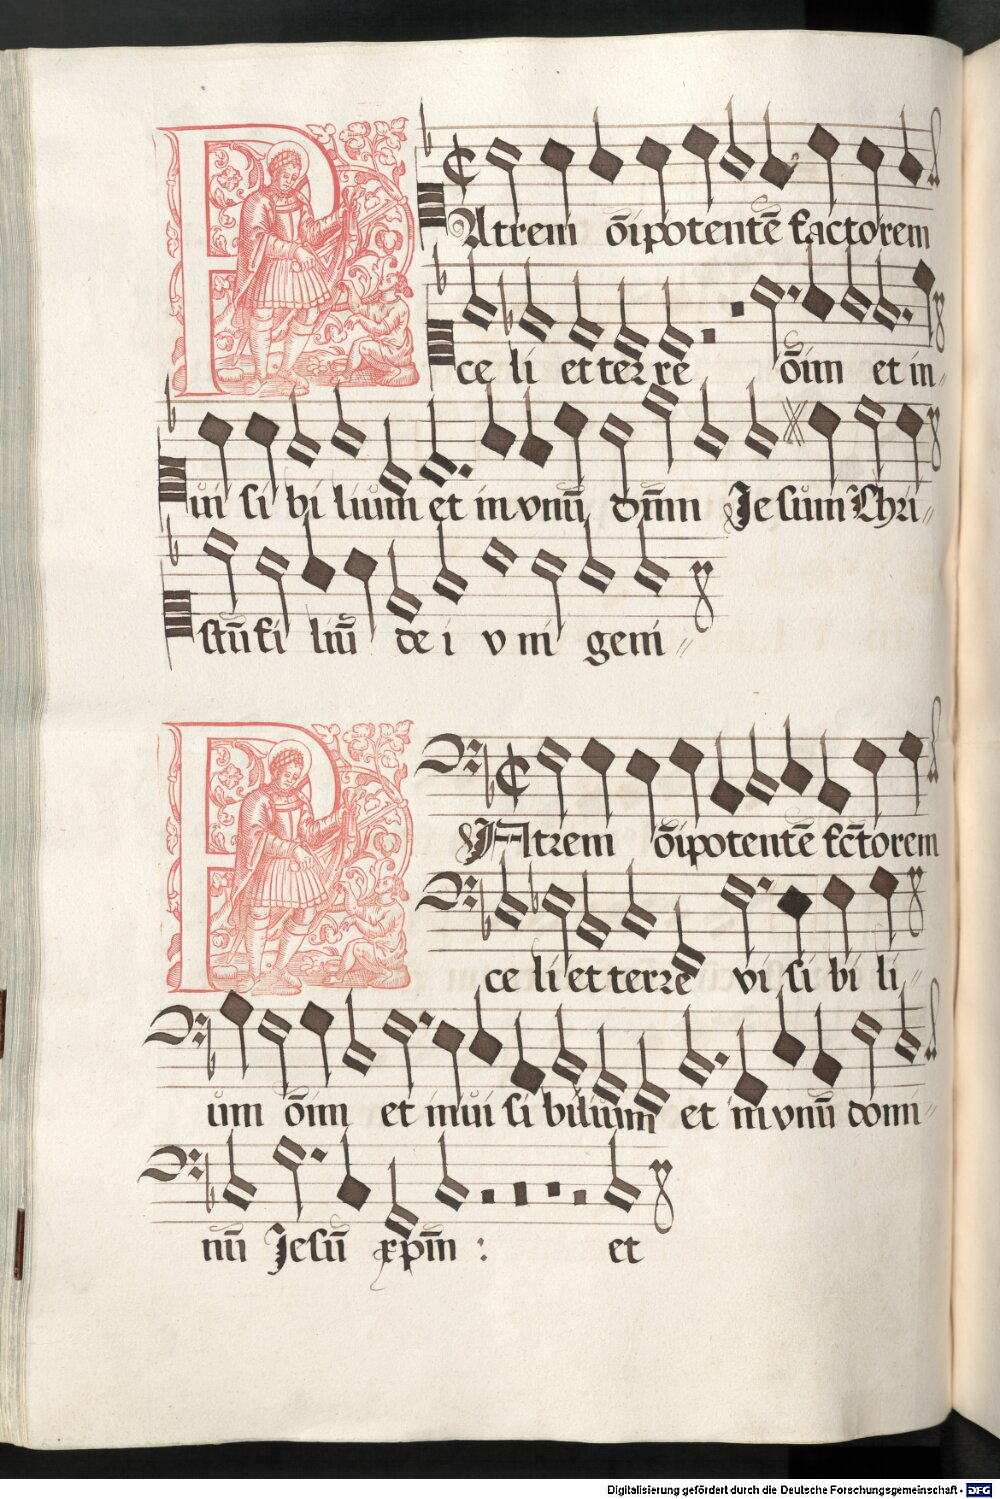 PAtrem õipotentẽ factorem
ce li et ter re õim et in
ui si bi lium et in vnũ dom̃n Je sum Chri
stũ fi liũ de i v ni geni
PAtrem õipotentẽ fc̃torem
ce li et terre vi si bi li
um õim et inui si bilium et in vnũ domi
nũ Jesũ xp̃m : et
Digitalisierung gefördert durch die Deutsche Forschungsgemeinschaft - DFG